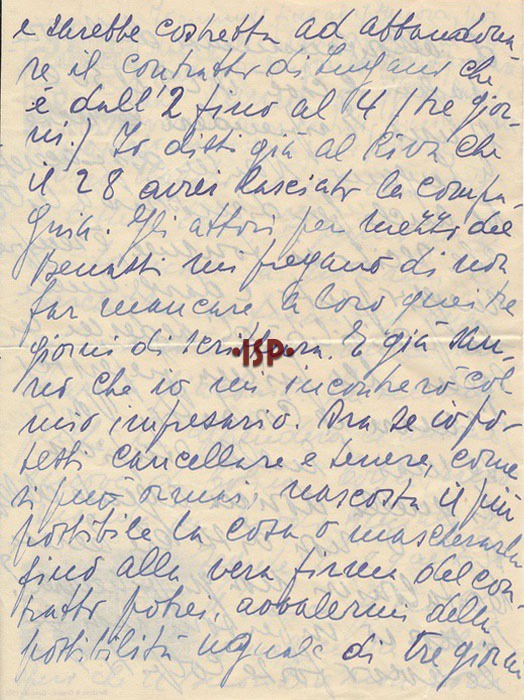 e sarebbe costretta ad abbandona-
re il contratto di Lugano che
è dall'2 fino al 4 (tre gior-
ni.) Io dissi già al Riva che
il 28 avrei lasciato la compa-
gnia. Gli attori per mezzo del
Benassi mi pregano di non
far mancare a loro questi tre
giorni di scrittura. E già san-
no che io mi incontrerò col
mio impresario. Ora se io po-
tessi cancellare e tenere, come
si può ormai, nascosta il più
possibile la cosa o mascherarla
fino alla vera firma del con-
tratto potrei, avvalermi della
possibilità uguale di tre giorni
·ISP·